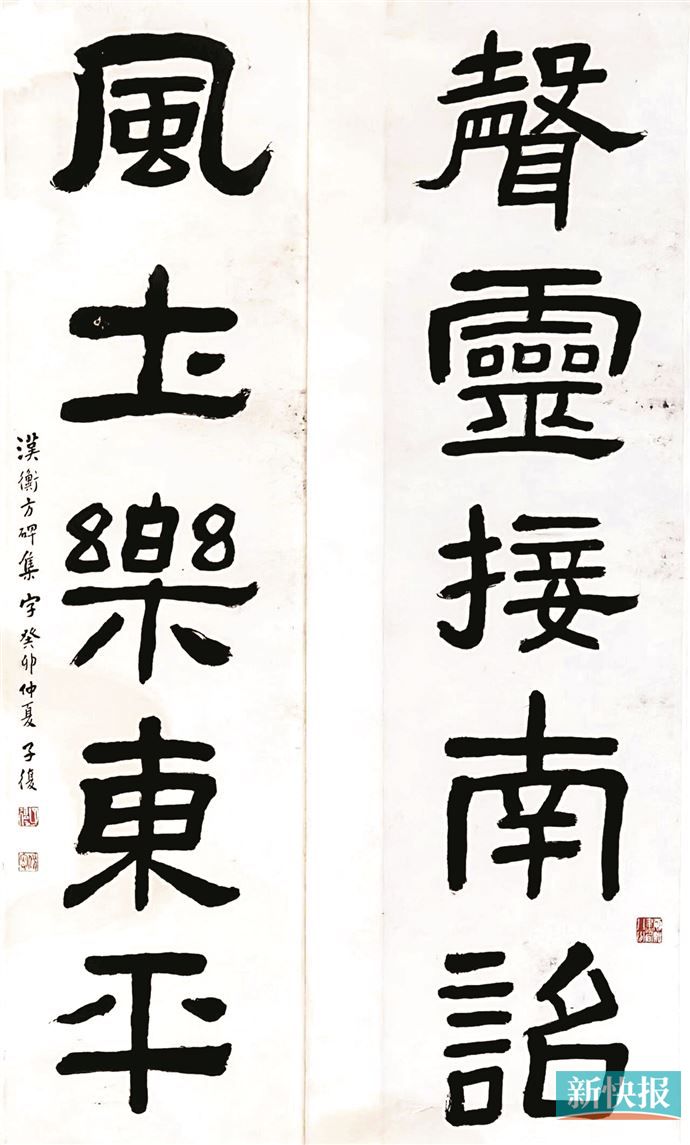 聲靈接南詔
風土樂東平
漢衡方碑集字癸卯仲夏子復
新快报